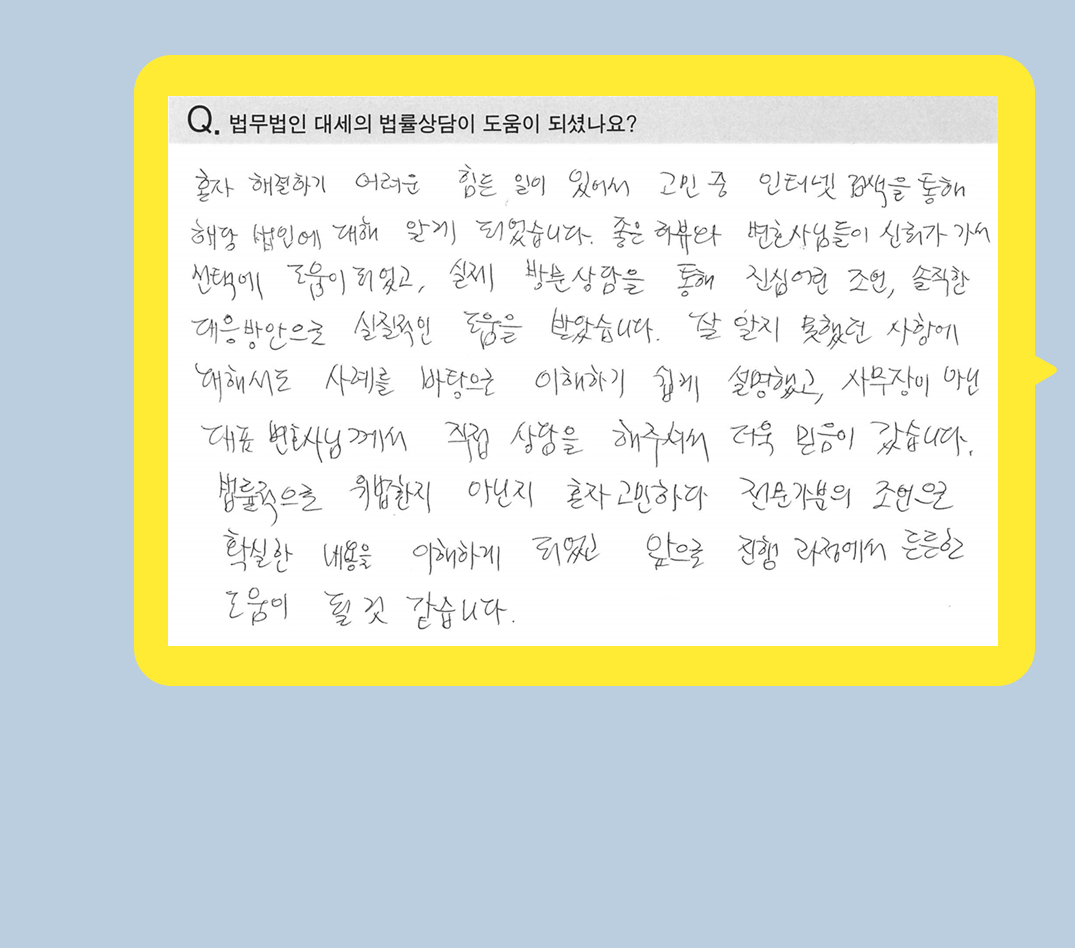 Q. 법무법인 대세의 법률상담이 도움이 되셨나요?
혼자 해결하기 어려운 힘든 일이 있어서 고민 중 인터넷 검색을 통해
해당 법인에 대해 알게 되었습니다. 좋은 허뷰와 변호사님들이 신뢰가 가서
선택에 도움이 되었고, 실제 방문상담을 통해 진심어린 조언, 솔직한
대응방안으로 실질적인 도움을 받았습니다. 잘 알지 못했던 사항에
대해서도 사례를 바탕으로 이해하기 쉽게 설명했고, 사무장이 아닌
대표 변호사님께서 직접 상담을 해주셔서 더욱 믿음이 갔습니다.
법률적으로 위법한지 아닌지 혼자 고민하다 전문가분의 조언으로
확실한 내용을 이해하게 되었고 앞으로 진행 과정에서 든든한
도움이 될 것 같습니다.